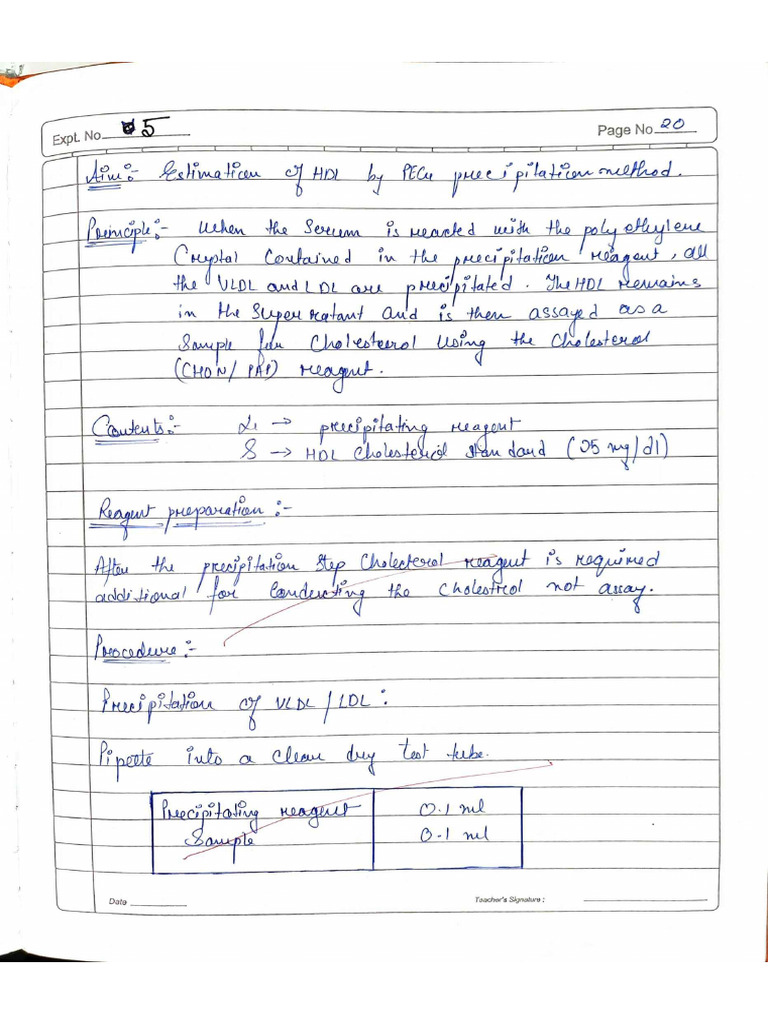 Expt. No. 5
Page No. 20
Aim:- Estimation of HDL by PEG precipitation method.
Principle:- When the Serum is reacted with the polyethylene
Crystal Contained in the precipitation reagent, all
the VLDL and LDL are precipitated. The HDL remains
in the supernatant and is then assayed as a
Sample for Cholesterol Using the Cholesterol
(CHON/PAP) reagent.
Contents:- L1 → precipitating reagent
S → HDL Cholesterol Standard (25 mg/dl)
Reagent preparation:-
After the precipitation step Cholesterol reagent is required
additional for Conducting the Cholestrol not assay.
Procedure:-
Precipitation of VLDL/LDL:
Pipette into a clean dry test tube.
Precipitating reagent 0.1 ml
Sample 0.1 ml
Date
Teacher's Signature: